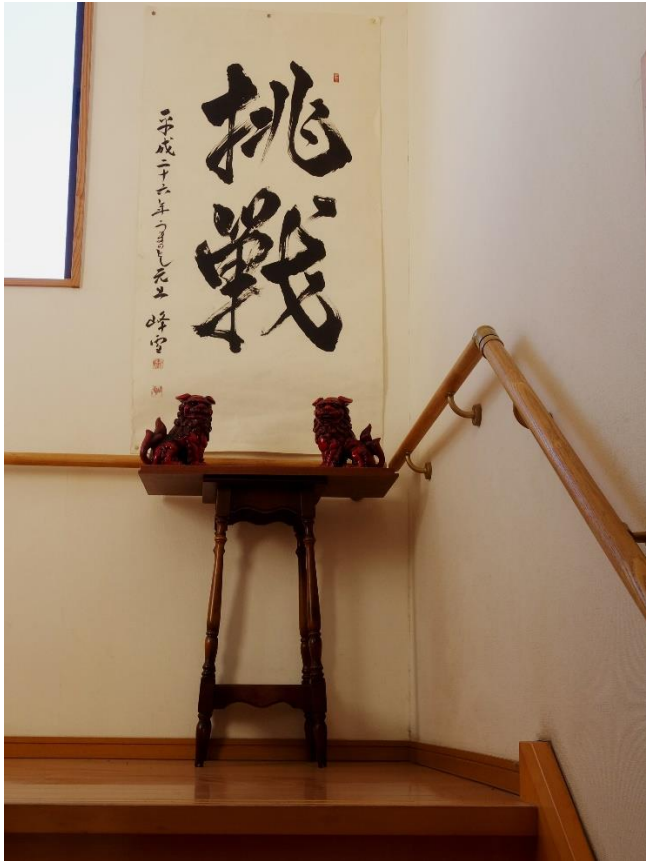 挑戦
平成二十六年 元旦 峰雪